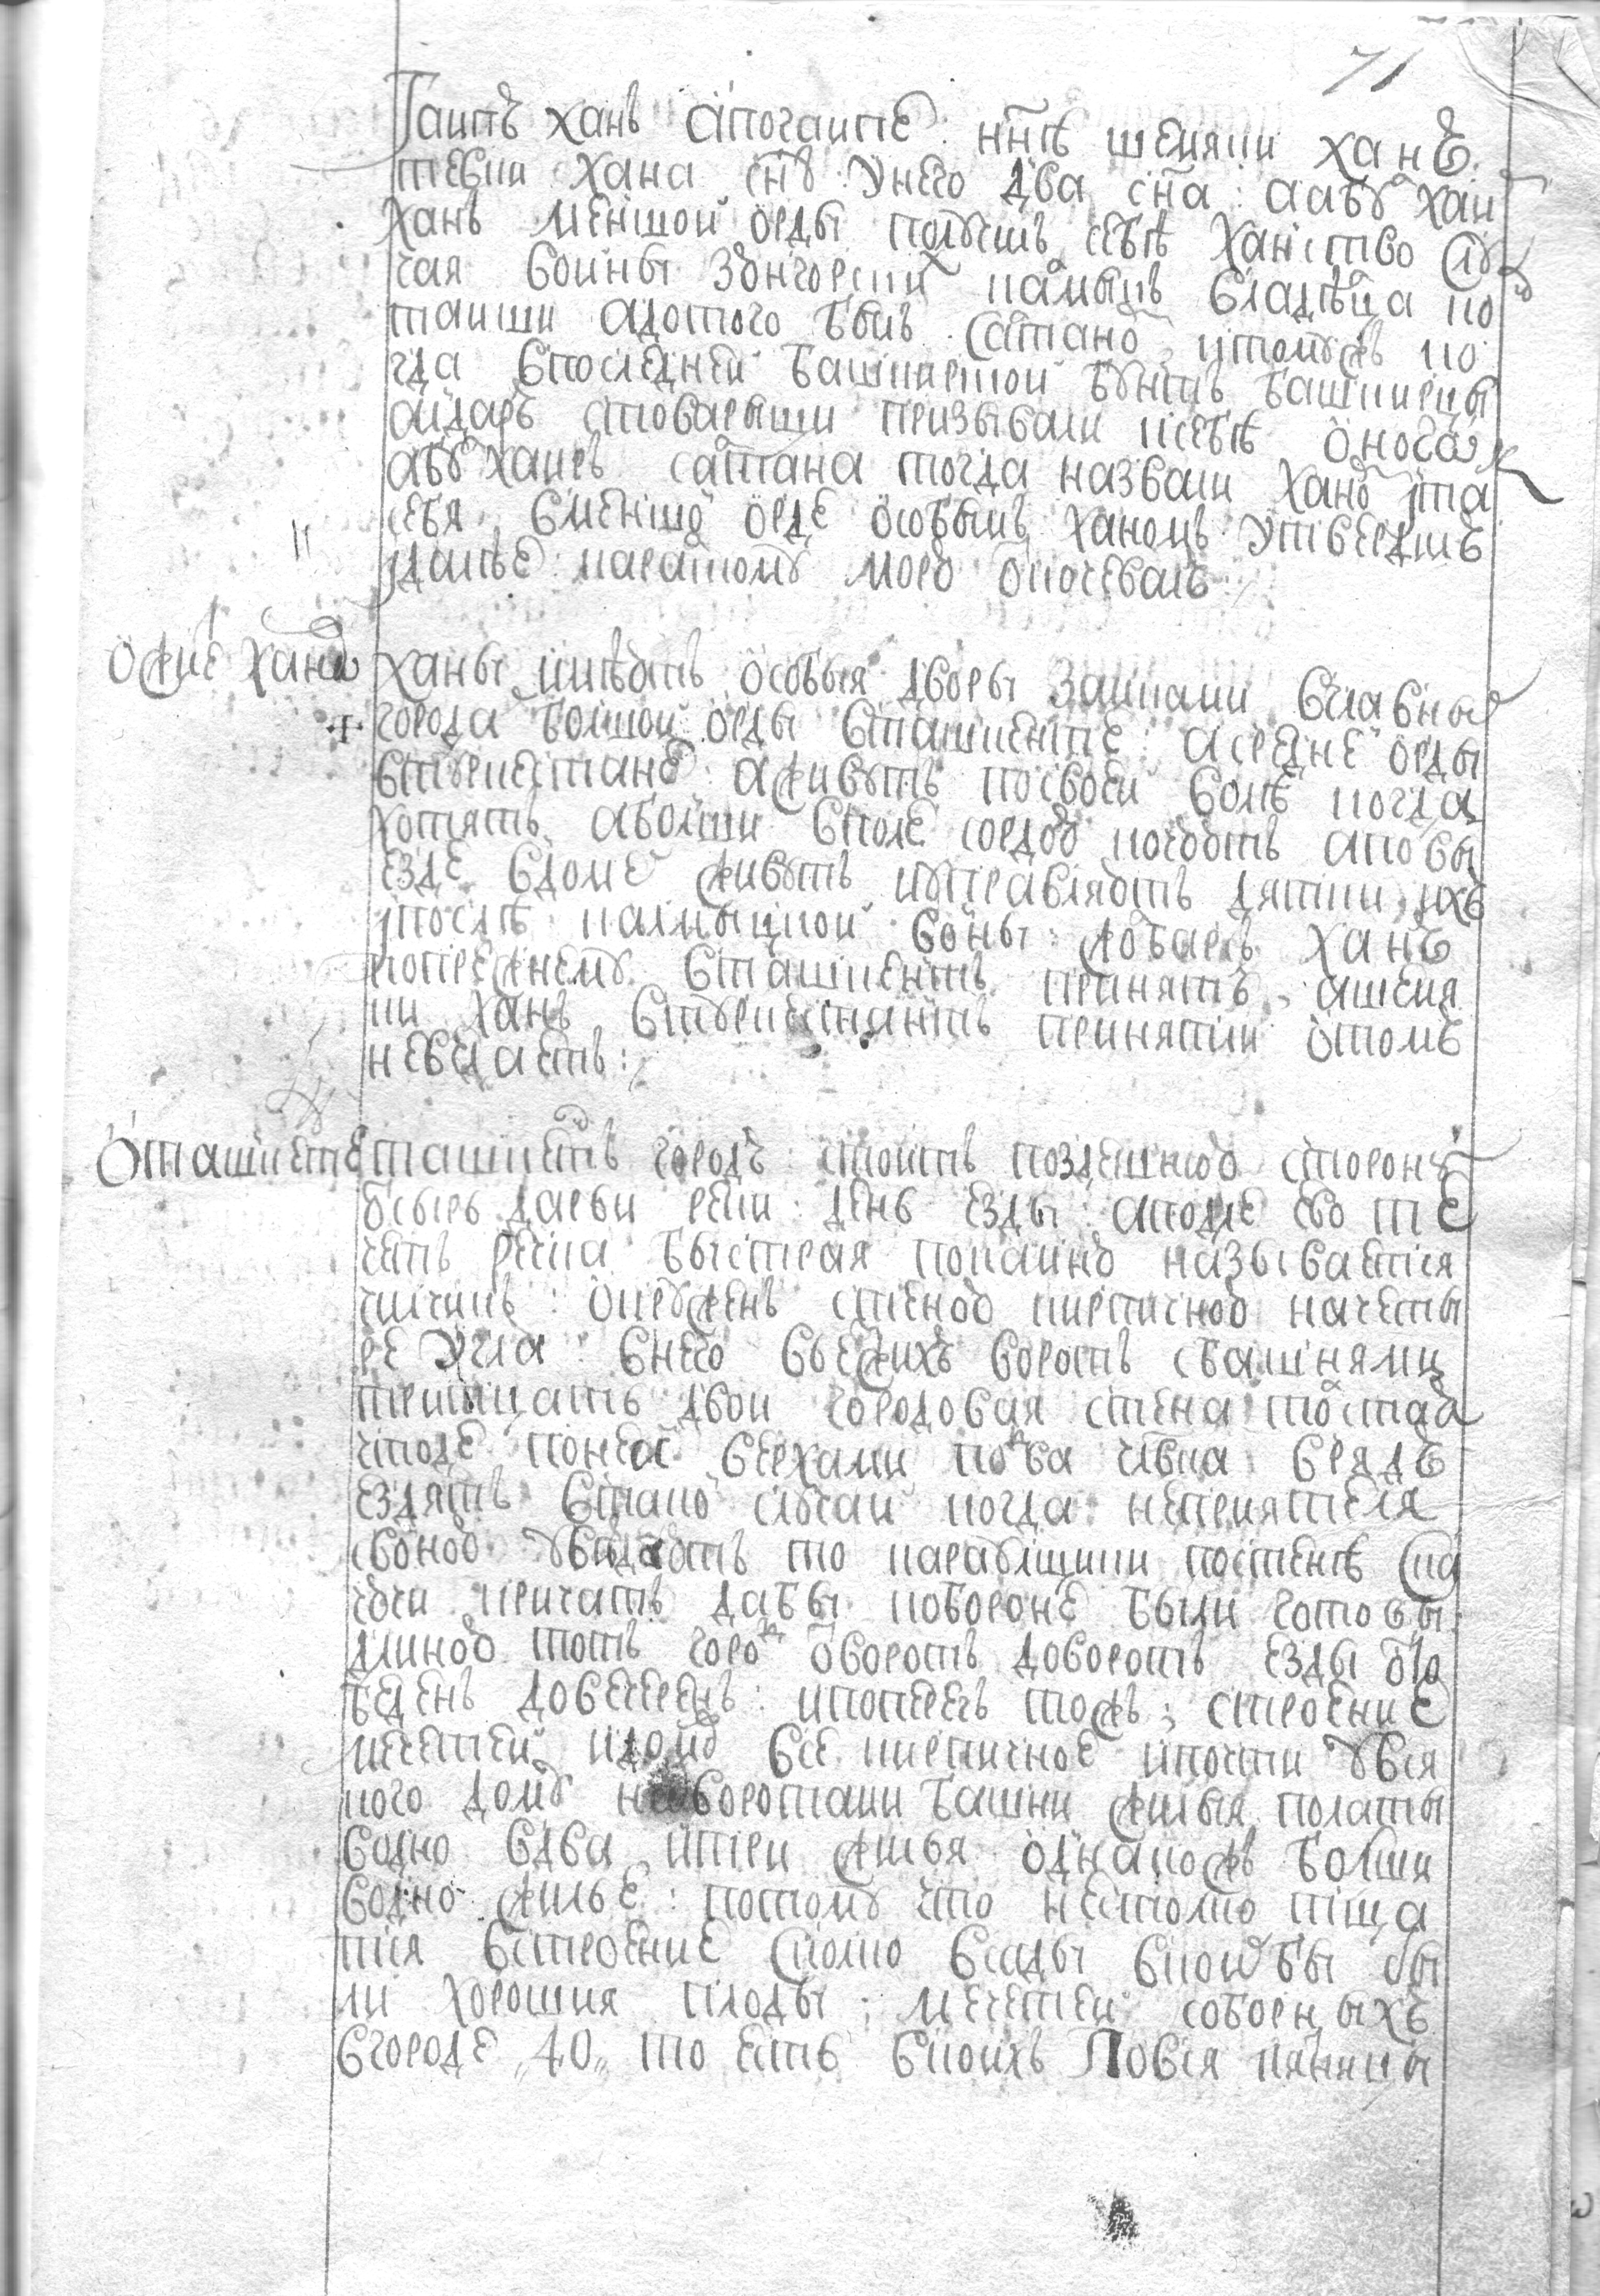 71
Гаипъ ханъ а погаипе: ннѣ шемяки ханъ
тевки хана снъ: у него два сна: а абу хаи
ханъ меншои орды получилъ себѣ ханство слу
чая воины зюнгорских калмыцъ владѣлца ко
таиши а до того былъ салтаномъ, и томужъ ко
гда в последней башкирской бунтъ башкирцы
аидаръ с товарыщи призывали к себѣ оного
абухаиръ салтана тогда назвали ханом и та
себя в меншой орде особымъ ханомъ утвердилъ
и далѣе каракому морю окочевалъ:
О жиле ханов
ханы имѣютъ особыя дворы замками в главных
города болшой орды в ташкенте: а средне орды
в туркестане: а живутъ по своей волѣ когда
хотятъ, а болши в поле с ордою кочуютъ а по вы
езде в доме живутъ и управляютъ дятки ихъ
и послѣ калмыцкой воины: жобаръ ханъ
по прежнему в ташкентъ принятъ, а шемя
ки ханъ в туркестантъ принятли о томъ
не ведаетъ:
О ташкенте
ташкентъ городъ: стоитъ по здешнюю сторону
у сыръ дарьи реки: день езды: а подле ево те
четъ речка быстрая по каину называется
чирчикъ: окруженъ стеною кирпичною на четы
ре угла: в него въезжихъ воротъ з башнями
тритцать двои городовая стена толста
что де по ней верхами по два члвка в рядъ
ездятъ в такой случай когда неприятеля
с воною увидаютъ то караулщики по стенѣ ска
чючи кричатъ дабы к обороне были готовы:
длиною тотъ город от воротъ до воротъ езды о
беденъ до вечеренъ: и поперегъ тожъ, строение
мечетей и домов все кирпичное и почти у вся
кого дому над воротами башни жилыя полаты
в одно в два и три жилья однакожъ болши
в одно жилье: потому что не столко тща
тся в строение сколко в сады в коих бы бы
ли хорошия плоды; мечетей соборныхъ
в городе „40„ то есть в коихъ по вся пяницы